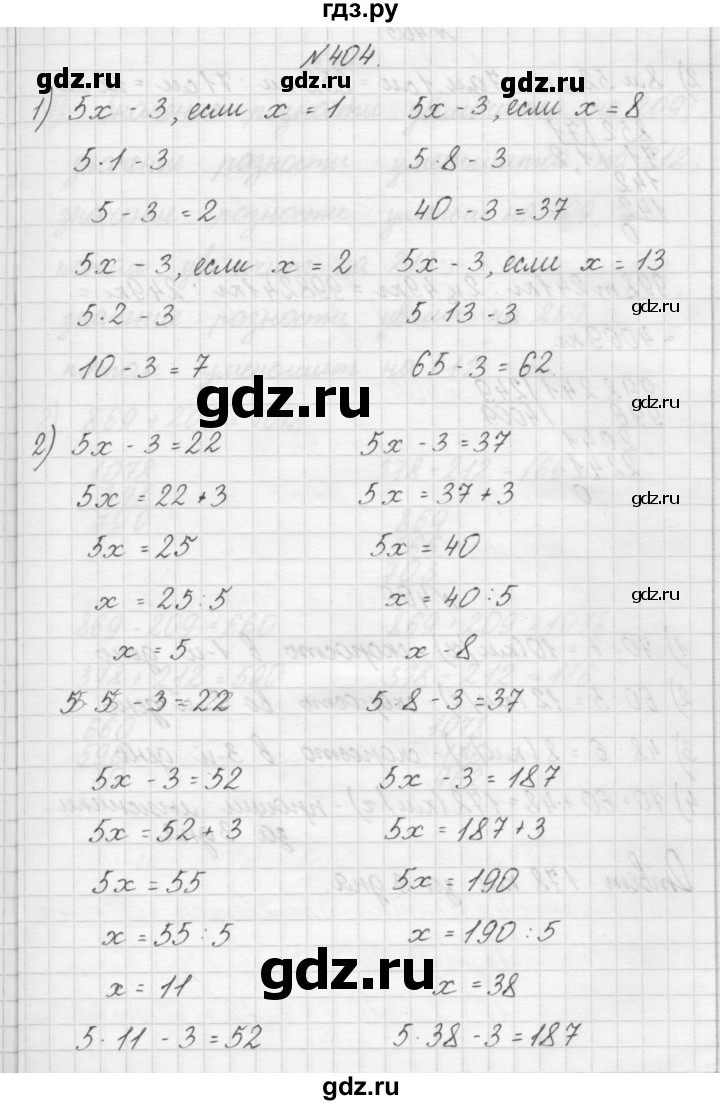 гдз.ру
№404.
gdz.ru gdz.ru
1) 5x - 3, если x = 1 5x - 3, если x = 8
5·1 - 3 5·8 - 3
5 - 3 = 2 40 - 3 = 37
5x - 3, если x = 2 5x - 3, если x = 13
5·2 - 3 5·13 - 3
gdz.ru
10 - 3 = 7 65 - 3 = 62
gdz.ru
2) 5x - 3 = 22 5x - 3 = 37
5x = 22 + 3 5x = 37 + 3
gdz.ru
5x = 25 5x = 40
x = 25 : 5 x = 40 : 5
gdz.ru
x = 5 x - 8
5·5 - 3 = 22 5·8 - 3 = 37
5x - 3 = 52 5x - 3 = 187
5x = 52 + 3 5x = 187 + 3
5x = 55 5x = 190
x = 55 : 5 x = 190 : 5
gdz.ru
x = 11 x = 38
5·11 - 3 = 52 5·38 - 3 = 187
gdz.ru